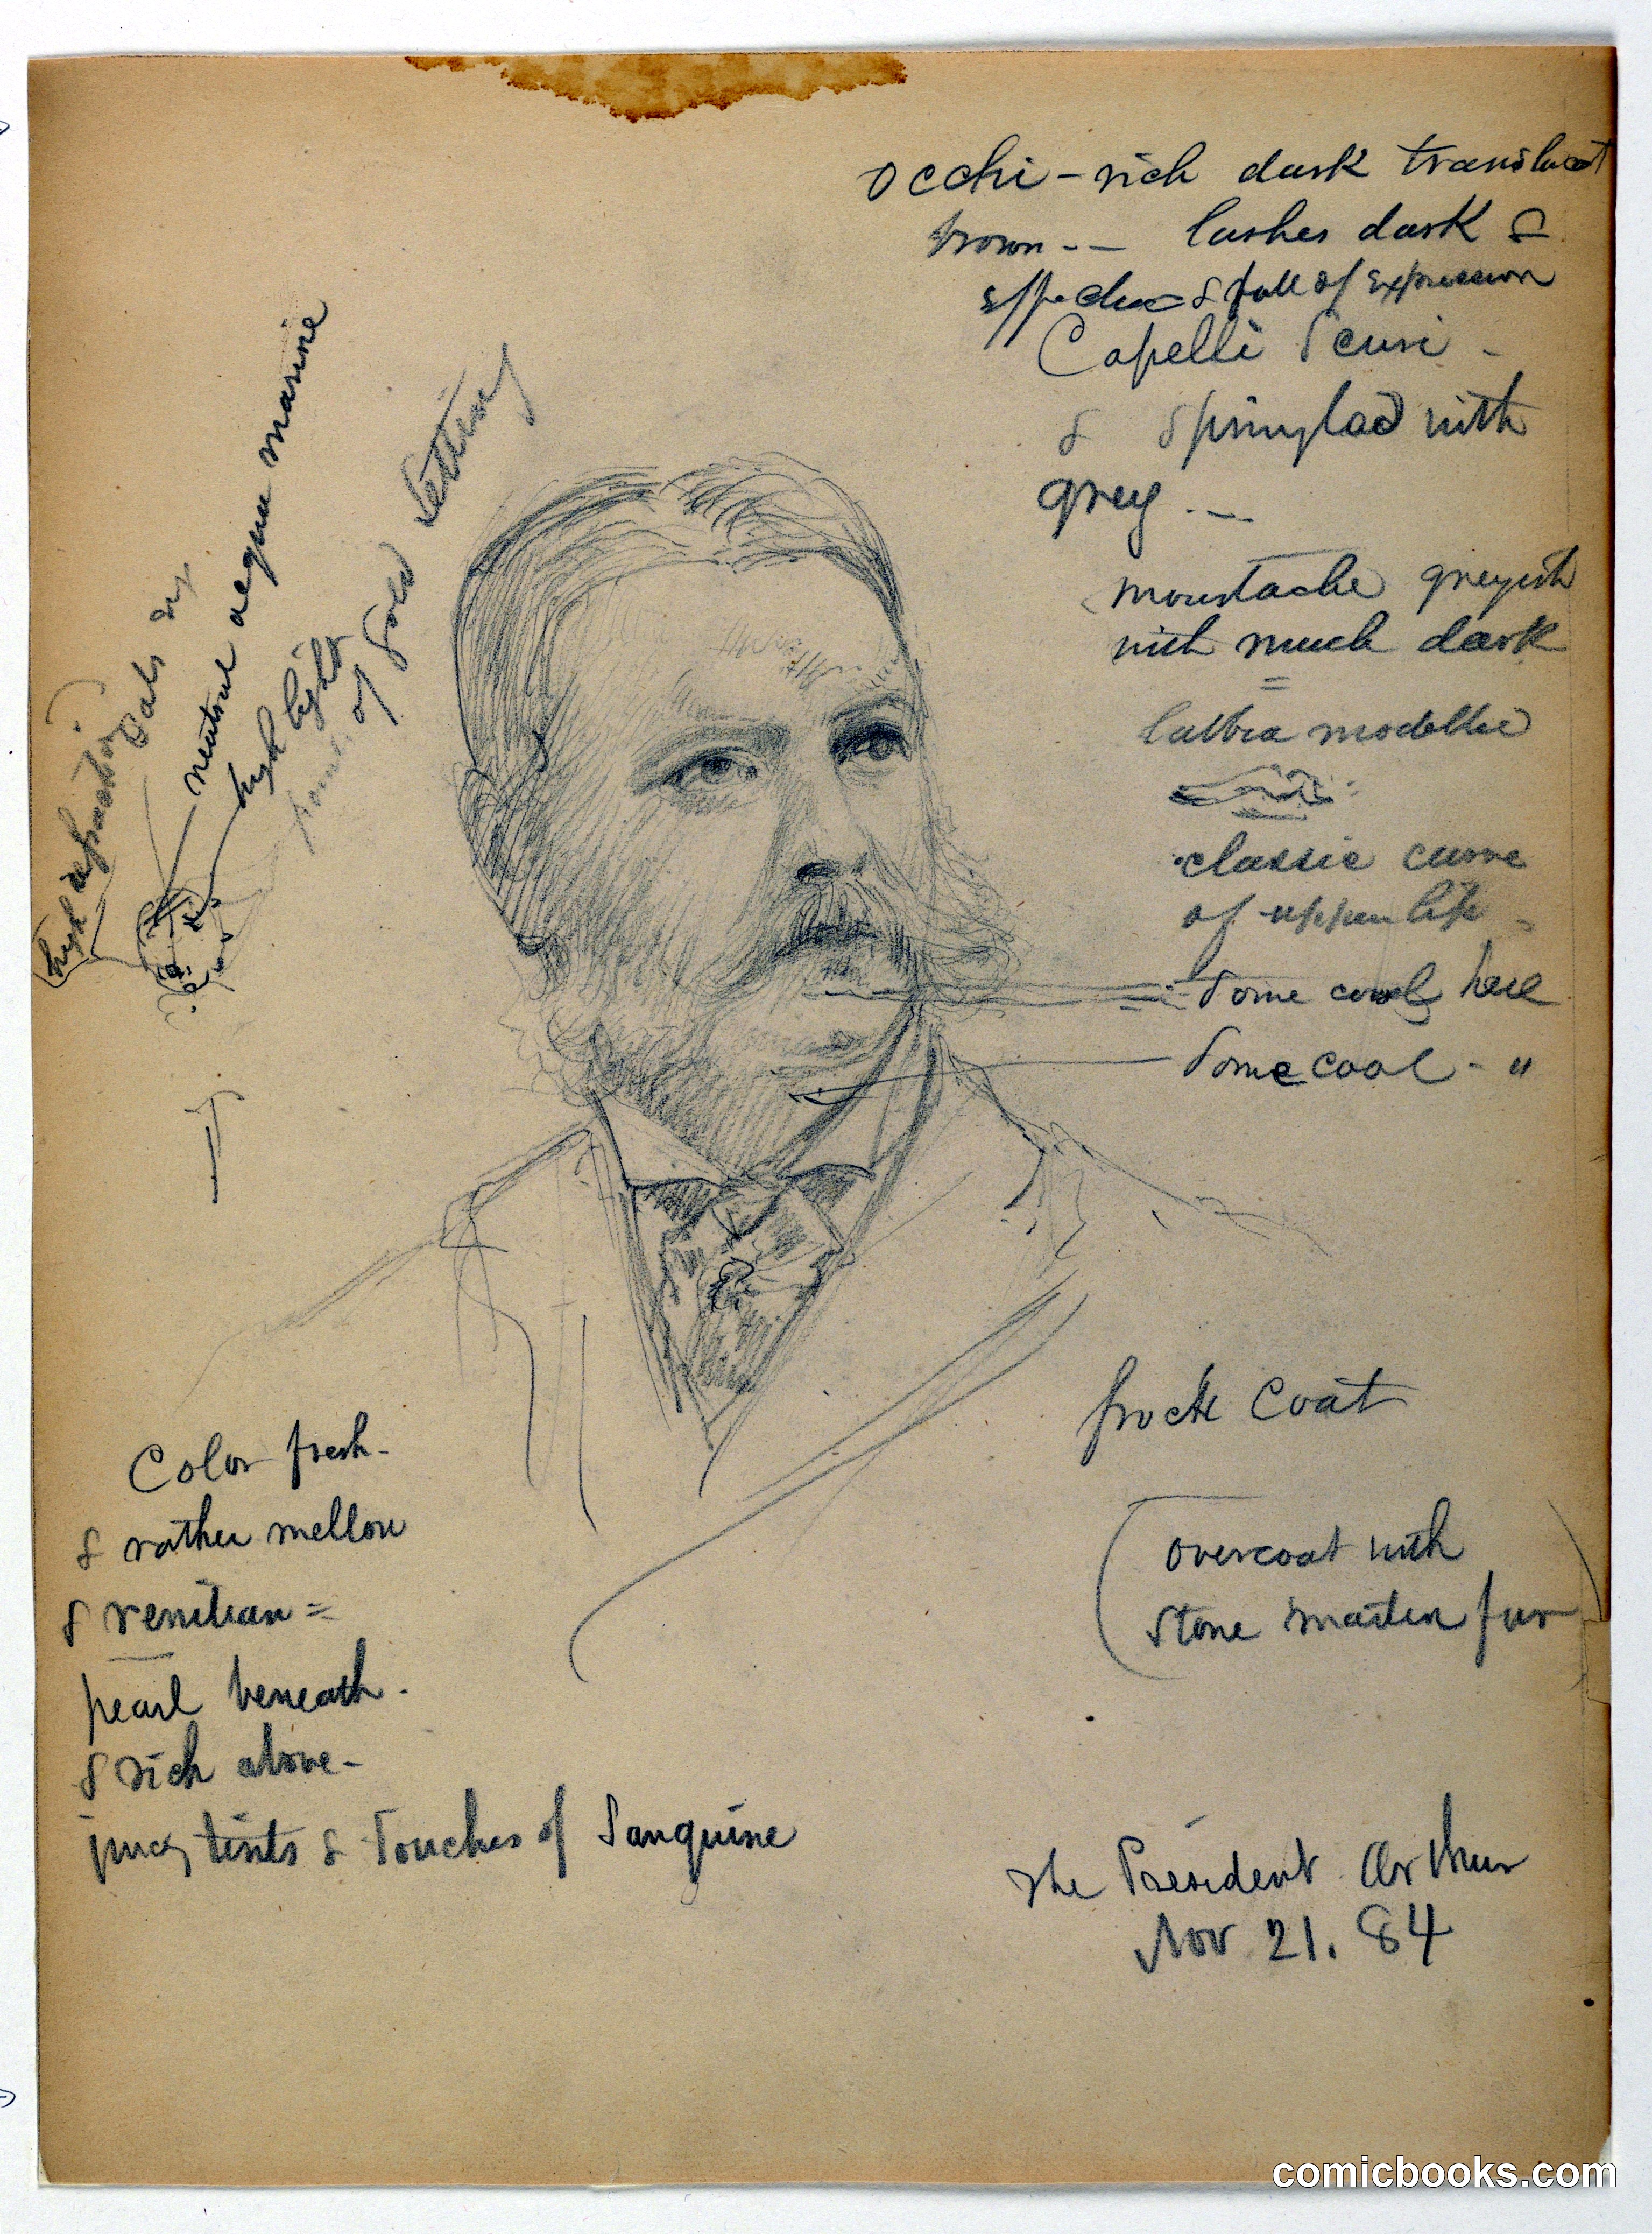 occhi - rich dark translucent
brown -- lashes dark &
effective & full of expression
Capelli scuri -
& sprinylad with
grey . —
moustache greyish
with much dark
labbra modelled
classic curve
of upper lip -
Some cool here
Some cool - "
high refraction
neutral aequa marine
high lights
of Gold Setting
frock Coat
overcoat with
stone marten fur
Color fresh -
& rather mellow
& venitian =
pearl beneath -
& rich above -
juicy tints & touches of Sanguine
The President Arthur
Nov 21. 84
comicbooks.com